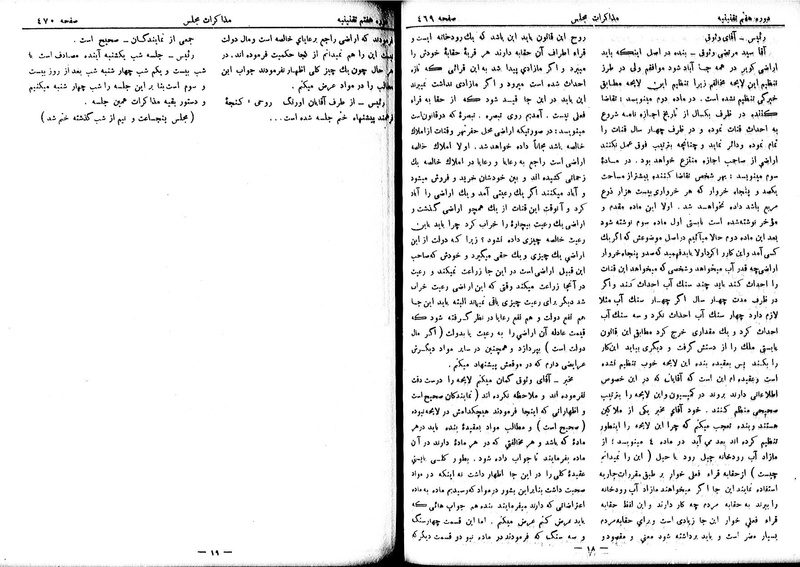 دوره هفتم تقنینیه
مذاکرات مجلس
صفحه ۴۶۹
رئیس ـ آقای وثوق
آقا سید مرتضی وثوق ـ بنده در اصل اینکه باید
اراضی کویر در همه جا آباد شود موافقم ولی در طرز
تنظیم این لایحه مخالفم زیرا تنظیم این لایحه مطابق
خبرگی تنظیم نشده است . در ماده دوم مینویسد : تقاضا
کننده در ظرف یکسال از تاریخ اجازه نامه شروع
به احداث قنات نموده و در ظرف چهار سال قنات را
تمام نموده و دائر نماید و چنانچه بترتیب فوق عمل نکنند
اراضی از صاحب اجازه منتزع خواهد بود . در مادهٔ
سوم مینویسد : بهر شخص تقاضا کننده بیشتر از مساحت
یکصد و پنجاه خروار که هر خرواری بیست هزار ذوع
مربع باشد داده نخواهد شد . اولا این ماده مقدم و
مؤخر نوشته شده است بایستی اول ماده سوم نوشته شود
بعد این ماده دوم حالا میآئیم در اصل موضوعش که اگر یک
کسی آمد و این کار را کرد اولا باید فهمید که صد و پنجاه خروار
اراضی چه قدر آب میخواهد و شخصی که میخواهد این قنات
را احداث کند باید چند سنگ آب احداث کند و اگر
در ظرف مدت چهار سال اگر چهار سنگ آب مثلا
لازم دارد چهار سنگ آب احداث نکرد و سه سنگ آب
احداث کرد و یک مقداری خرج کرد مطابق این قانون
بایستی ملک را از دستش گرفت و دیگری بیاید این کار
را بکند پس بعقیده بنده این لایحه خوب تنظیم نشده
است و عقیده ام این است که آقایانی که در این خصوص
اطلاعاتی دارند بروند در کمیسیون و این لایحه را بترتیب
صحیحی منظم کنند . خود آقای مخبر یکی از ملاکین
هستند و بنده تعجب میکنم که چرا این لایحه را اینطور
تنظیم کرده اند بعد می آید در ماده ٤ مینویسد : از
مازاد آب رودخانه چبل رود یا حبل ( این را نمیدانم
چیست ) از حقابه قراء فعلی خوار بر طبق مقررات جاریه
استفاده نمایند این جا اگر میخواهند مازاد آب رودخانه
را ببرند به حقابه مردم چه کار دارند و این لفظ حقابه
قراء فعلی خوار این جا زیادی است و برای حقابه مردم
بسیار مضر است و باید برداشته شود معنی و مقصود و
روح این قانون باید این باشد که یک رودخانه ایست و
قراء اطراف آن حقابه دارند هر قریهٔ حقابهٔ خودش را
میبرد و اگر مازادی پیدا شد به این قرائی که تازه
احداث شده است میرود و اگر مازادی نداشت نمیبرند
این باید در این جا قید شود که از حقابه قراء
فعلی نیست . آمدیم روی تبصره . تبصرهٔ که در قانون است
مینویسد : در صورتیکه اراضی محل حفر نهر و قنات از املاک
خالصه باشد مجاناً داده خواهد شد . اولا املاک خالصه
اراضی است راجع به رعایا و رعایا در املاک خالصه یک
زحماتی کشیده اند و بین خودشان خرید و فروش میشود
و آباد میکنند اگر یک رعیتی آمد و یک اراضی را آباد
کرد و آنوقت این قنات از یک همچو اراضی گذشت و
اراضی یک رعیت بیچارهٔ را خراب کرد چرا باید باین
رعیت خالصه چیزی داده نشود ؛ زیرا که دولت از این
اراضی یک چیزی و یک حقی میگیرد و خودش که صاحب
این قبیل اراضی است در این جا زراعت نمیکند و رعیت
در آنجا زراعت میکند وقتی که این اراضی رعیت خراب
شد دیگر برای رعیت چیزی باقی نمیماند البته باید این جا
هم نفع دولت و هم نفع رعایا در نظر گرفته شود که
قیمت عادله آن اراضی را به رعیت یا بدولت ( اگر مال
دولت است ) بپردازد و همچنین در سایر مواد دیگرش
عرایضی دارم که در موقعش پیشنهاد میکنم .
مخبر ـ آقای وثوق گمان میکنم لایحه را درست دقت
نفرموده اند و ملاحظه نکرده اند ( نمایندگان صحیح است
و اظهاراتی که اینجا فرمودند هیچکدامش در لایحه نبوده
( صحیح است ) و مطالب مواد بعقیدهٔ بنده باید در هر
مادهٔ که باشد و هر مخالفتی که در هر مادهٔ دارند در آن
ماده بفرمایند تا جواب داده شود . بطور کلی بایستی
عقیدهٔ کلی را در این جا اظهار داشت نه اینکه در مواد
صحبت داشت بنابراین بشور در مواد که رسیدیم ماده به ماده
اعتراضاتی که دارند میفرمایند بنده هم جواب هائی که
باید عرض کنم عرض میکنم . اما این قسمت چهار سنگ
و سه سنگ که فرمودند در ماده نیود و قسمت دیگر که
ـ ۱۸ ـ
دوره هفتم تقنینیه
مذاکرات مجلس
صفحه ۴۷۰
فرمودند که اراضی راجع برعایای خالصه است و مال دولت
نیست این را هم نمیدانم از کجا حکمیت فرموده اند . در
هر حال چون یک چیز کلی اظهار نفرمودند جواب این
مطالب را در مواد عرض میکنم .
رئیس ـ از طرف آقایان اورنگ ، روحی ؛ کفایت
پیشنهاد ختم جلسه شده است...
جمعی از نمایندگان ـ صحیح است .
رئیس ـ جلسه شب یکشنبه آینده مصادف است با
شب بیست و یکم شب چهار شنبه شب بعد از روز بیست
و سوم است بنا بر این جلسه را شب چهار شنبه میکنیم
و دستور بقیه مذاکرات همین جلسه .
( مجلس پنجساعت و نیم از شب گذشته ختم شد )
ـ ۱۹ ـ